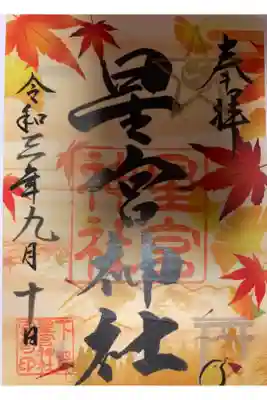 奉拝
星宮神社
星宮
神社
令和三年九月十日